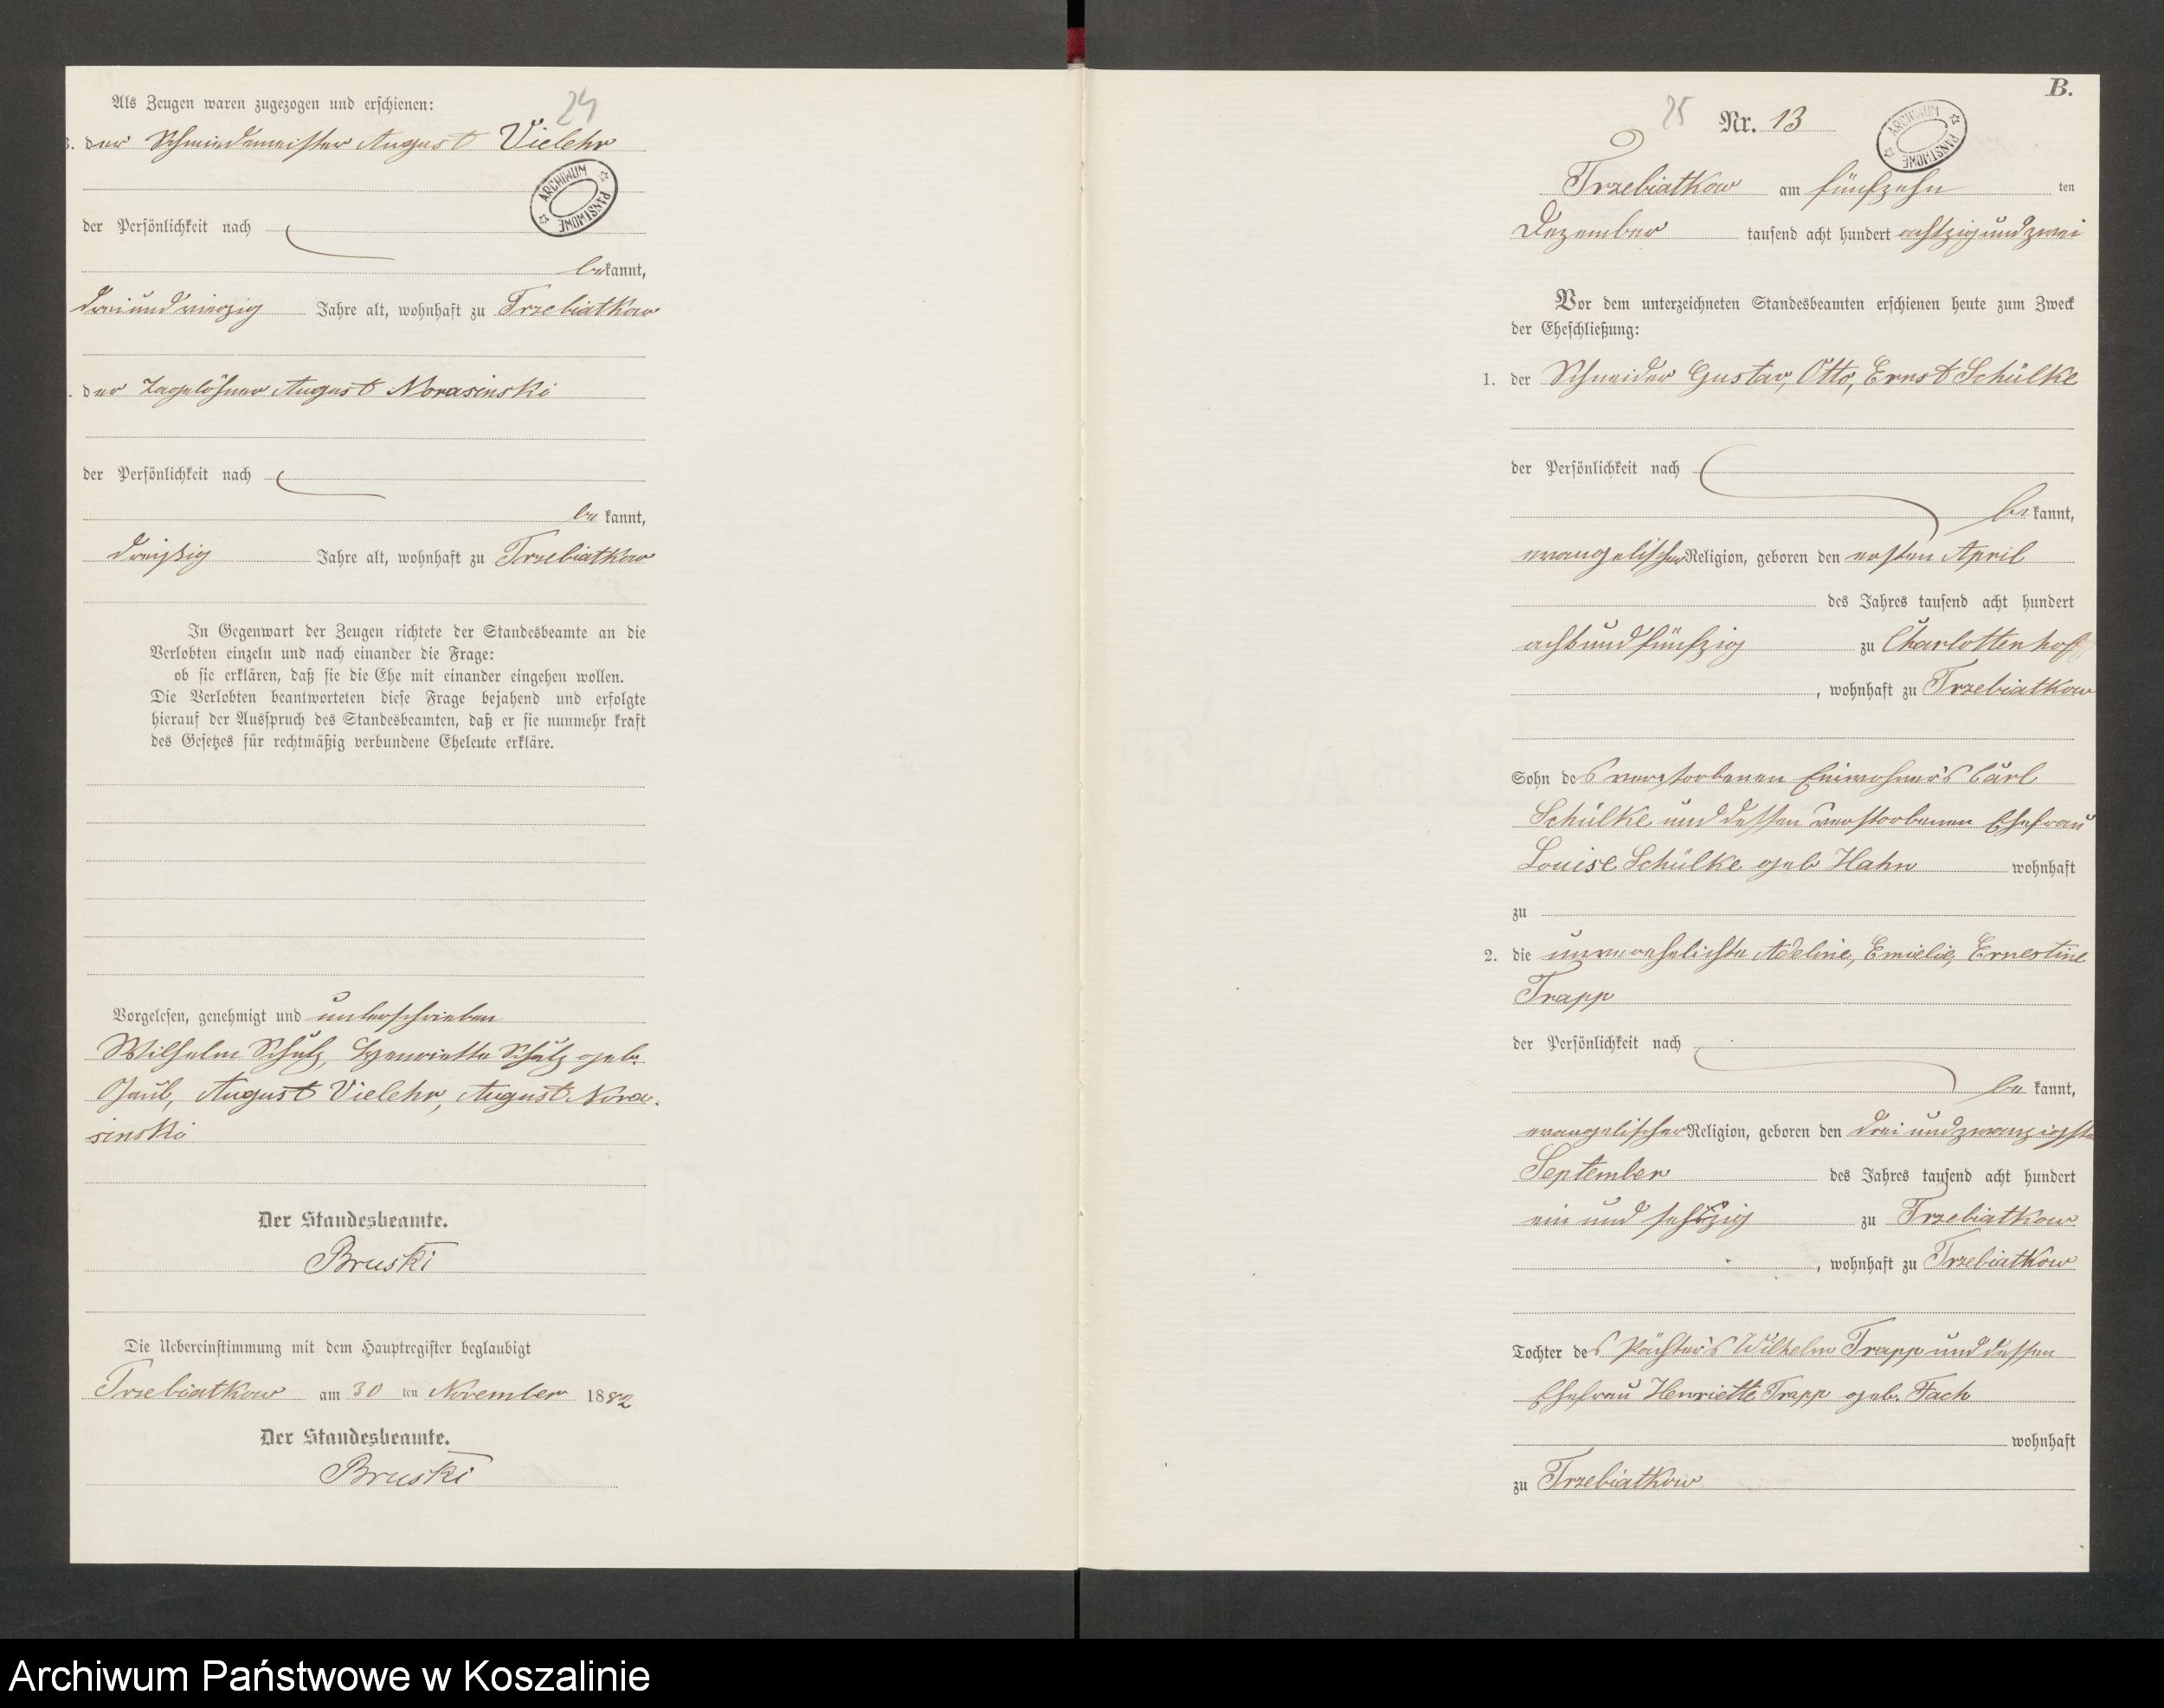 24
Als Zeugen waren zugezogen und erschienen:
3. der Schmiedemeister August Vielehr
ARCHIWUM PAŃSTWOWE
der Persönlichkeit nach
bekannt,
dreiundvierzig Jahre alt, wohnhaft zu Trzebiatkow
. der Tagelöhner August Norasinski
der Persönlichkeit nach
bekannt,
dreißig Jahre alt, wohnhaft zu Trzebiatkow
In Gegenwart der Zeugen richtete der Standesbeamte an die
Verlobten einzeln und nach einander die Frage:
ob sie erklären, daß sie die Ehe mit einander eingehen wollen.
Die Verlobten beantworteten diese Frage bejahend und erfolgte
hierauf der Ausspruch des Standesbeamten, daß er sie nunmehr kraft
des Gesetzes für rechtmäßig verbundene Eheleute erkläre.
Vorgelesen, genehmigt und unterschrieben
Wilhelm Schulz, Henriette Schulz geb.
August Vielehr, August Nora-
sinski
Der Standesbeamte.
Bruski
Die Uebereinstimmung mit dem Hauptregister beglaubigt
Trzebiatkow am 30 ten November 1882
Der Standesbeamte.
Bruski
B.
25
Nr. 13
ARCHIWUM PAŃSTWOWE
Trzebiatkow am fünfzehn ten
Dezember tausend acht hundert achtzigundzwei
Vor dem unterzeichneten Standesbeamten erschienen heute zum Zweck
der Eheschließung:
1. der Schneider Gustav, Otto, Ernst Schülke
der Persönlichkeit nach
bekannt,
evangelischer Religion, geboren den ersten April
des Jahres tausend acht hundert
achtundfünfzig zu Charlottenhof
, wohnhaft zu Trzebiatkow
Sohn des verstorbenen Einwohners Carl
Schülke und dessen verstorbenen Ehefrau
Louise Schülke geb Hahn wohnhaft
zu
2. die unverehelichte Adeline, Emielie, Ernestine
Trapp
der Persönlichkeit nach
bekannt,
evangelischer Religion, geboren den dreiundzwanzigsten
September des Jahres tausend acht hundert
ein und sechszig zu Trzebiatkow
, wohnhaft zu Trzebiatkow
Tochter des Pächters Wilhelm Trapp und dessen
Ehefrau Henriette Trapp geb. Fach
wohnhaft
zu Trzebiatkow
Archiwum Państwowe w Koszalinie